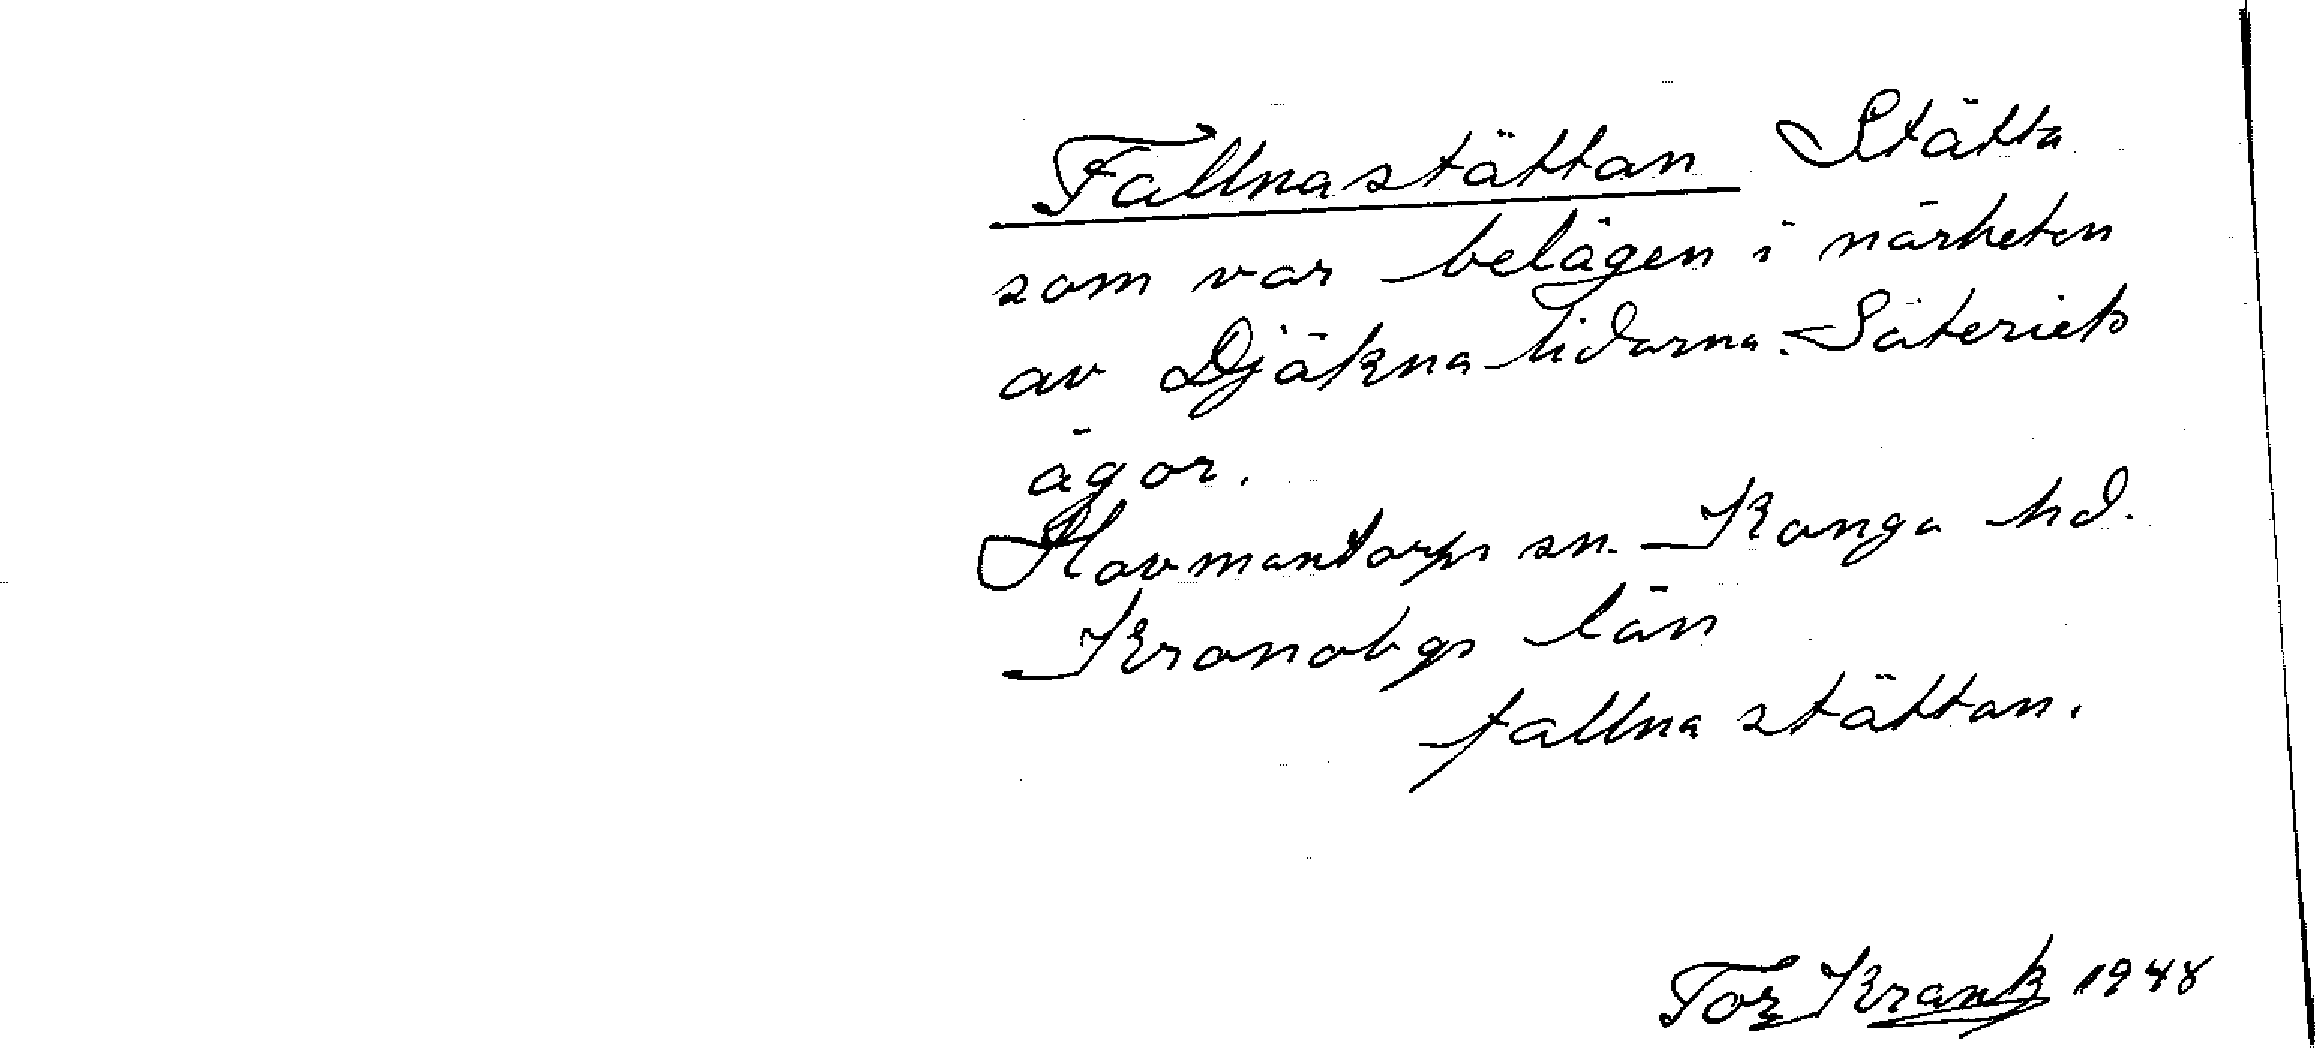 Fallnastättan Stätta
som var belägen i närheten
av Djäknalidarna Säteriets
ägor.
Hovmantorps sn. Konga hd.
Kronobgs län
fallnastättan.
Tor Krank 1948